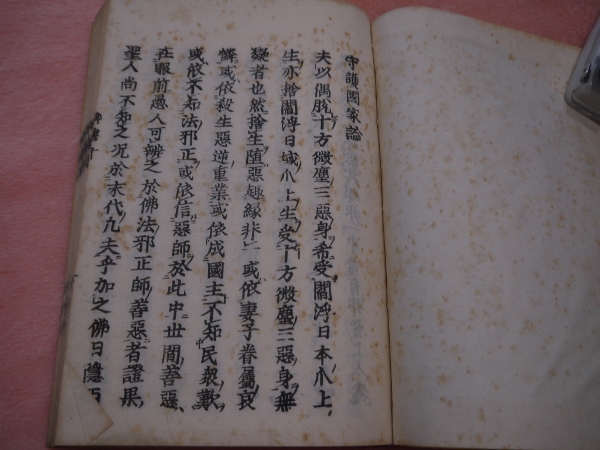 守護國家論
夫以偶脱十方微塵三惡身希受閻浮日本爪上
生亦捨閻浮日域爪上生受十方微塵三惡身無
疑者也然捨生墮惡趣縁非一或依妻子眷屬哀
憐或依殺生惡逆重業或依成國主不知民衆歎
或依不知法邪正或依信惡師於此中世間善惡
在眼前愚人可辨之於佛法邪正師善惡者證果
聖人尚不知之况於末代凡夫乎加之佛日隱西